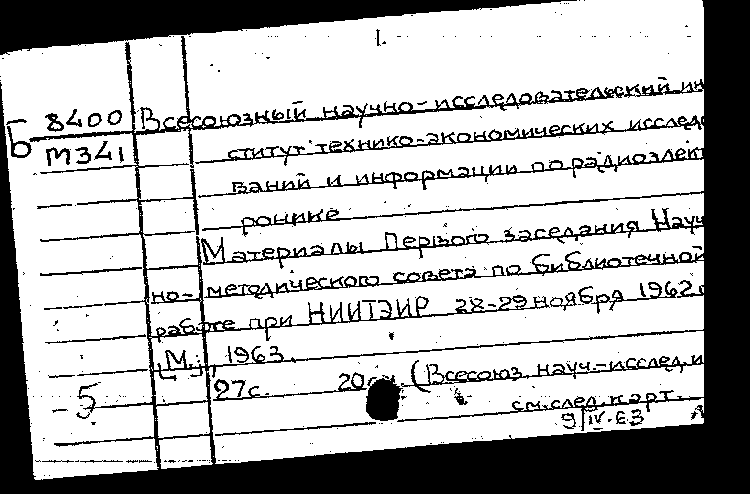 1.
Б 8400 Всесоюзный научно-исследовательский ин
М341 ститут технико-экономических исследо
ваний и информации по радиоэлект
ронике
Материалы Первого заседания Науч
но-методического совета по библиотечной
работе при НИИТЭИР 28-29 ноября 1962 г
[М.], 1963.
27с. 20см (Всесоюз. науч.-исслед. и
5 см. след. карт.
9/IV-63